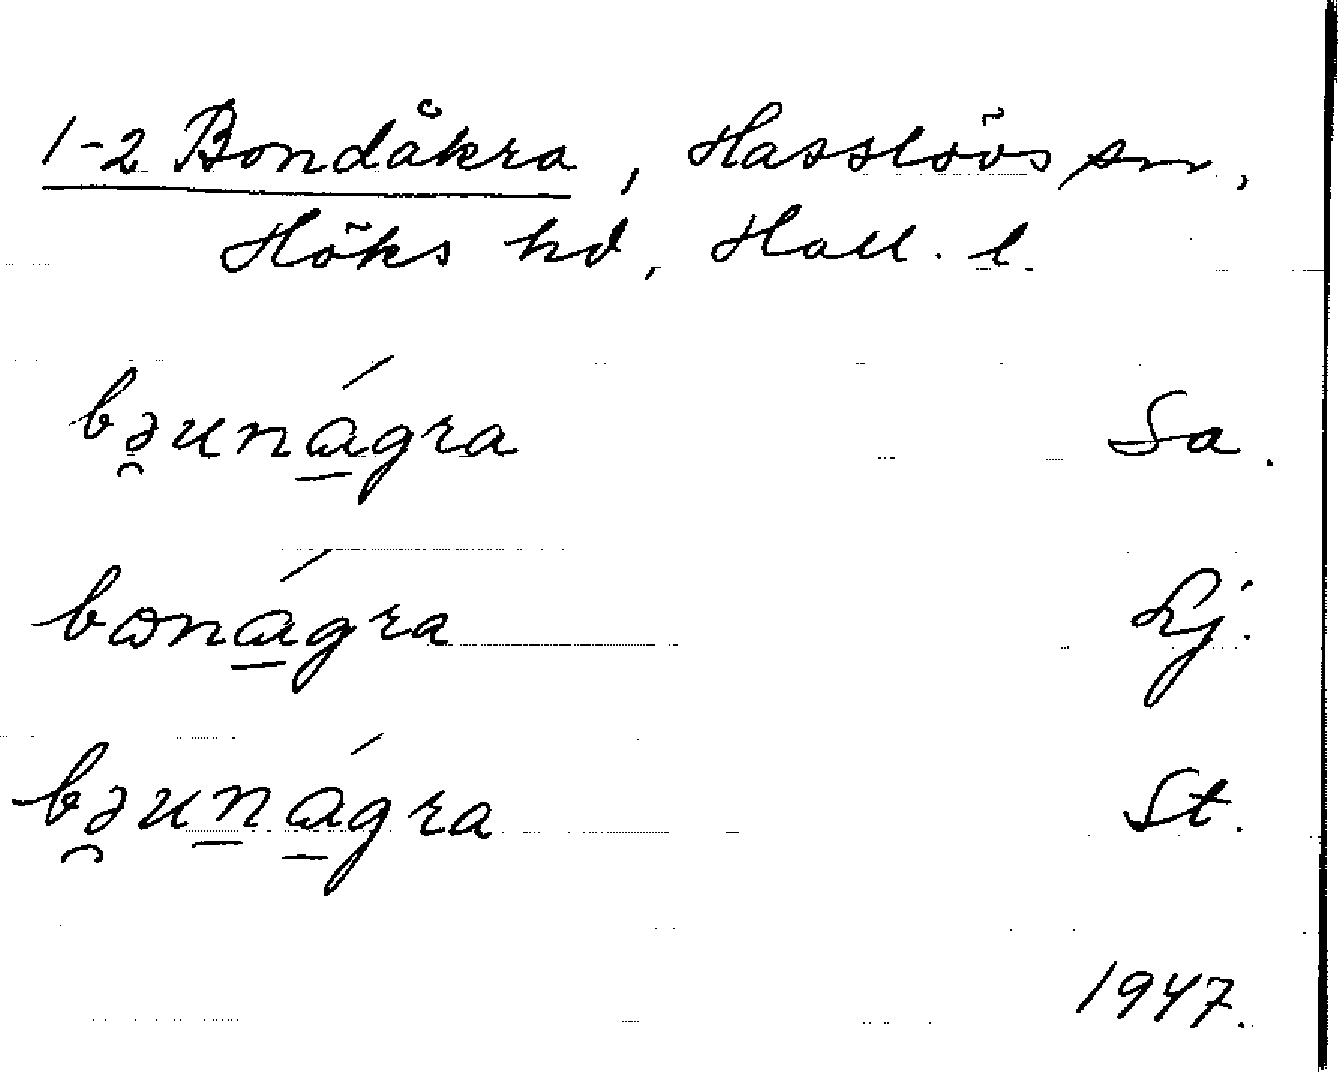 1-2 Bondåkra, Hasslövs sn,
Höks hd, Hall. l.
bə̯unágra Sa.
bɷnágra Lj.
bə̯unágra St.
1947.